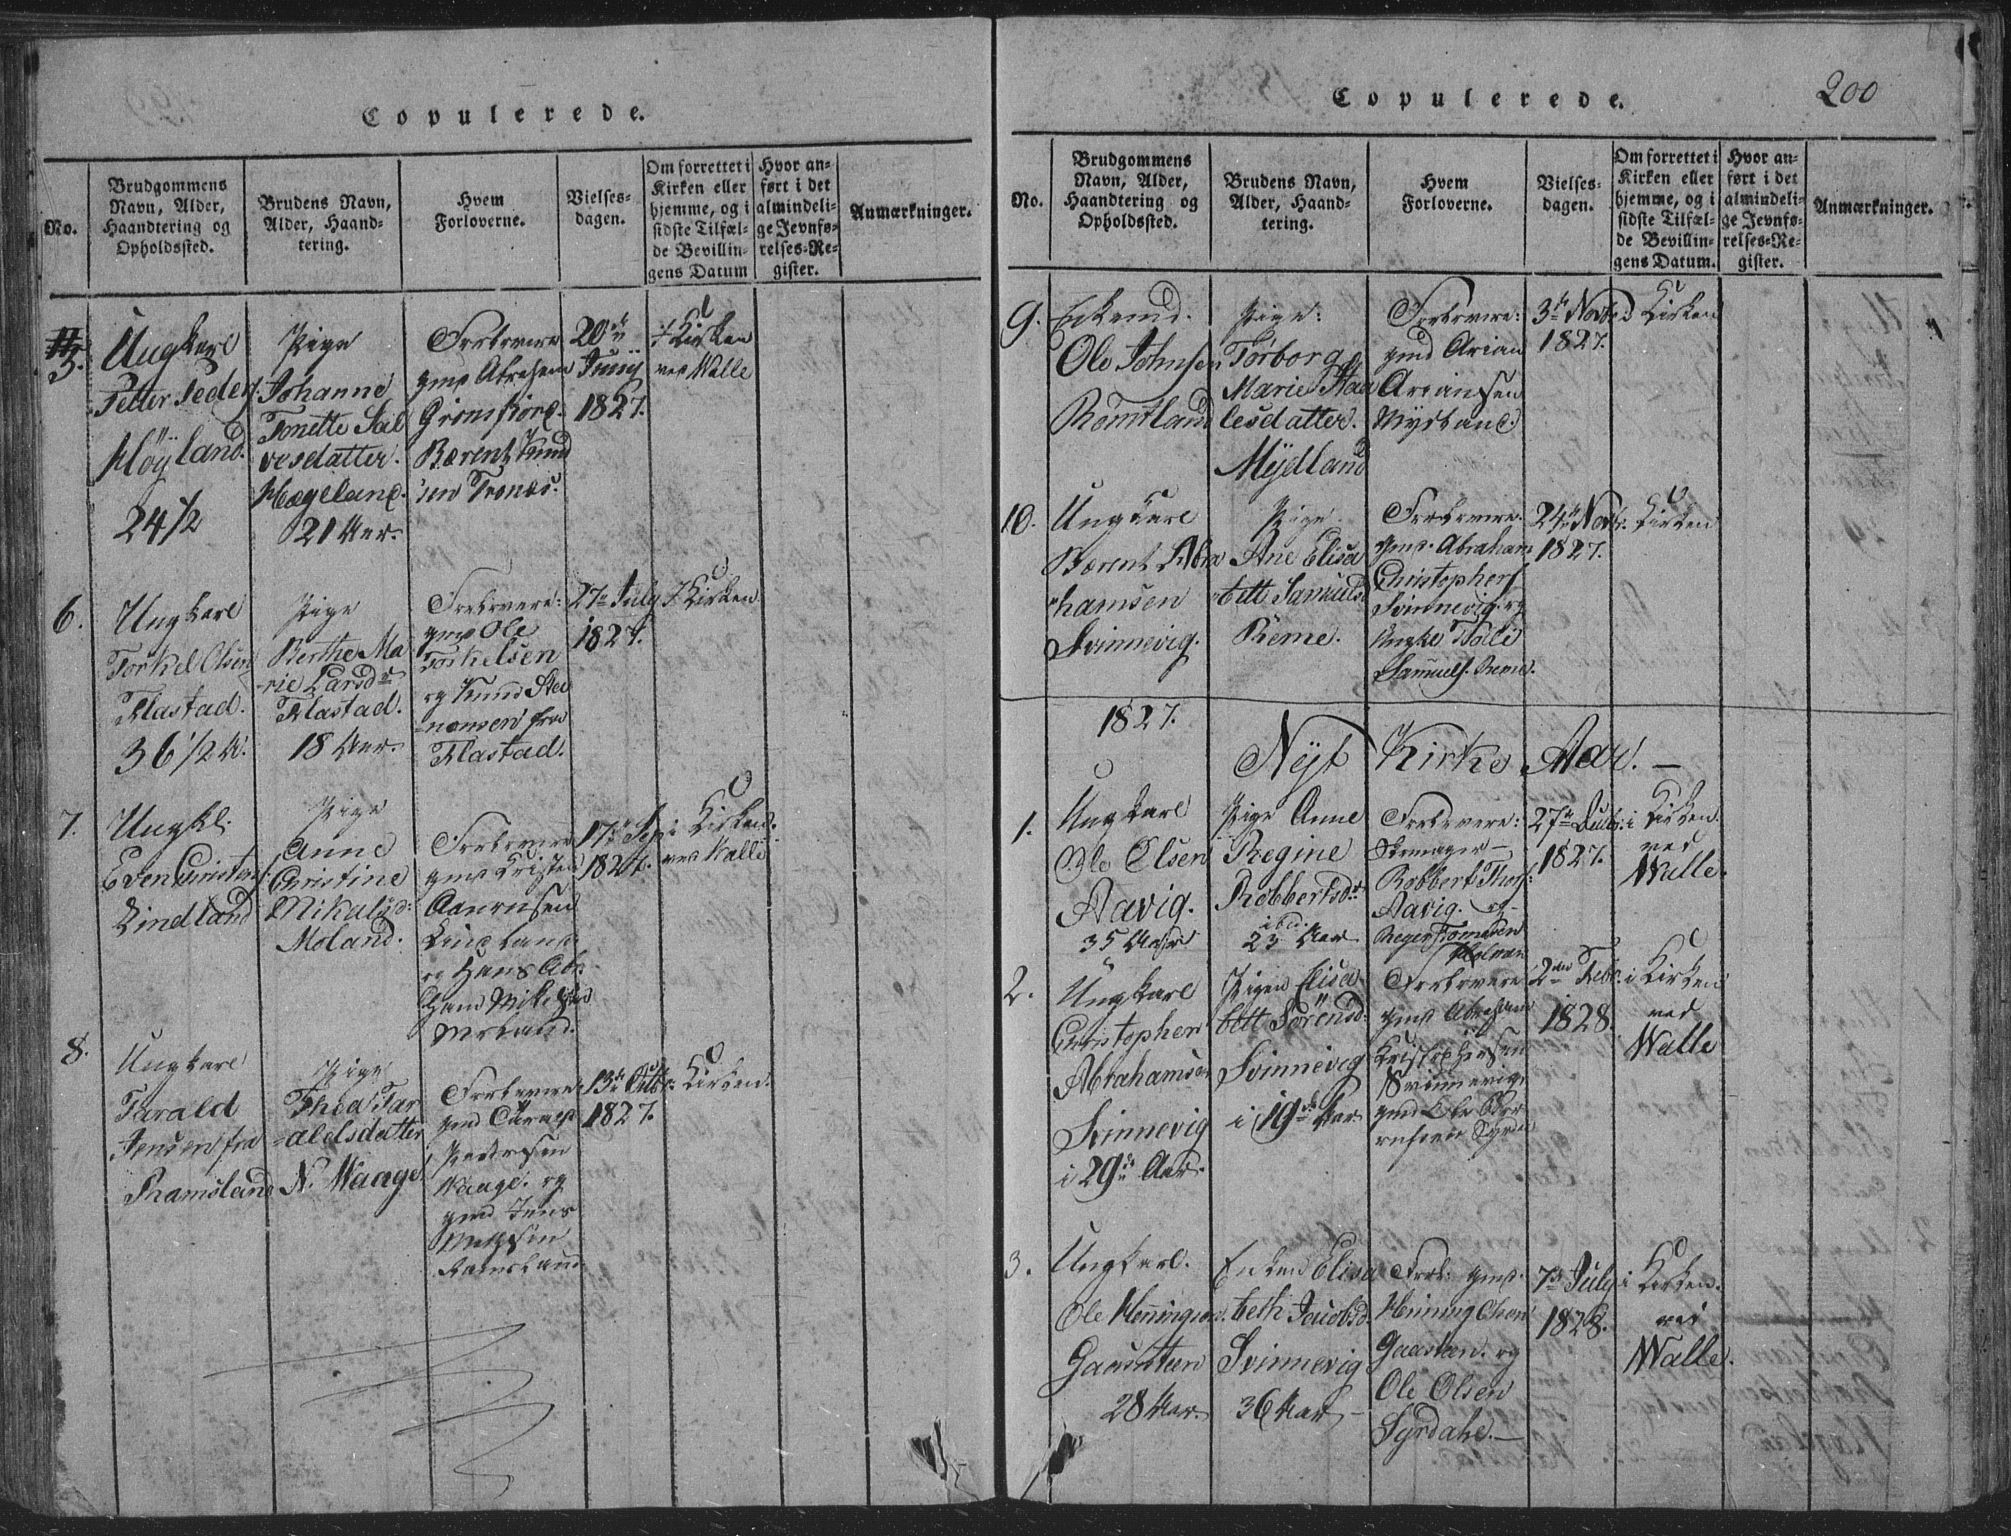 Copulerede.
No.
Brudgommens
Navn, Alder,
Haandtering og
Opholdssted.
Brudens Navn,
Alder, Haand-
tering.
Hvem
Forloverne.
Vielses-
dagen.
Om forrettet i
Kirken eller
hjemme, og i
sidste Tilfæl-
de Bevillin-
gens Datum
Hvor an-
ført i det
almindeli-
ge Jevnfø-
relses-Re-
gister.
Anmærkninger.
5.
Ungkarl
Peder
Høyland.
24 1/2
Pige
Johanne
Tonette Sal
vesdatter.
Hægeland.
21 Aar.
Forlovere
Abraham
Grønsfiord.
Bærent Knud
sen Tronæs.
20de
Junij
1827.
i Kirken
ved Walle
6.
Ungkarl
Torkel Olsen
Flastad.
36 1/2 A.
Pige
Berthe Ma
rie Larsdr
Flastad.
18 Aar.
Forlovere:
Ole
Torkelsen
og Knud
fra
Flastad.
27de July
1827.
i Kirken
7.
Ungkl.
Even Christens
Lindland
Pige
Anne
Christine
Mikalsd:
Moland.
Forlovere
Kristen
Lindland
og Hans
Moland.
17de Sep
1827.
i Kirken
ved Valle
8.
Ungkarl
Tarald
Jensen fra
Ramsland
Pige
Thea Tar
aldsdatter
N. Waage
Forlovere
Pedersen
Waage. og
Jens
Ramsland
13de Octbr.
1827.
Kirken.
Copulerede.
200
No.
Brudgommens
Navn, Alder,
Haandtering og
Opholdssted.
Brudens Navn,
Alder, Haand-
tering.
Hvem
Forloverne.
Vielses-
dagen.
Om forrettet i
Kirken eller
hjemme, og i
sidste Tilfæl-
de Bevillin-
gens Datum.
Hvor an-
ført i det
almindeli-
ge Jevnfø-
relses-Re-
gister.
Anmærkninger.
9.
Enkemd.
Ole Johnsen
Romtland
Pige:
Torborg
Marie Staa
lesdatter.
Mydland
Forlovere:
Arian
Ariansen
Mydland.
3de Novb
1827.
Kirken
10.
Ungkarl
Bærent Abra
hamsen
Svinnevig.
Pige
Ane Elisa
beth Samuelsd.
Reme.
Forlovere.
Abraham
Christophers
Svinnevig. og
Samuels. Reme.
24de Novbr.
1827.
Kirken
1827.
Nyt Kirke Aar. —
1.
Ungkarl
Ole Olsen
Aavig.
35 Aar
Pige Anne
Regine
Robbertsdr.
ibd:
23 Aar
Forlovere:
Robbert Thors.
Aavig. og
27de
1827.
i Kirken
ved
Walle.
2.
Ungkarl
Christopher
Abrahamsen
Svinnevig
i 29de Aar.
Pigen Elisa
bett Sørensd.
Svinnevig
i 19de Aar
Forlovere
Abraham
Kristophersen
Svinnevig.
Ole
2den Febr.
1828.
i Kirken
ved
Walle
3.
Ungkarl.
Ole Henningsen.
28 Aar.
Enken Elisa
beth Jacobsd.
Svinnevig
36 Aar
Forl.
Henning
og
Ole Olsen
Syrdahl. —
7de July
1828.
i Kirken.
ved
Walle.